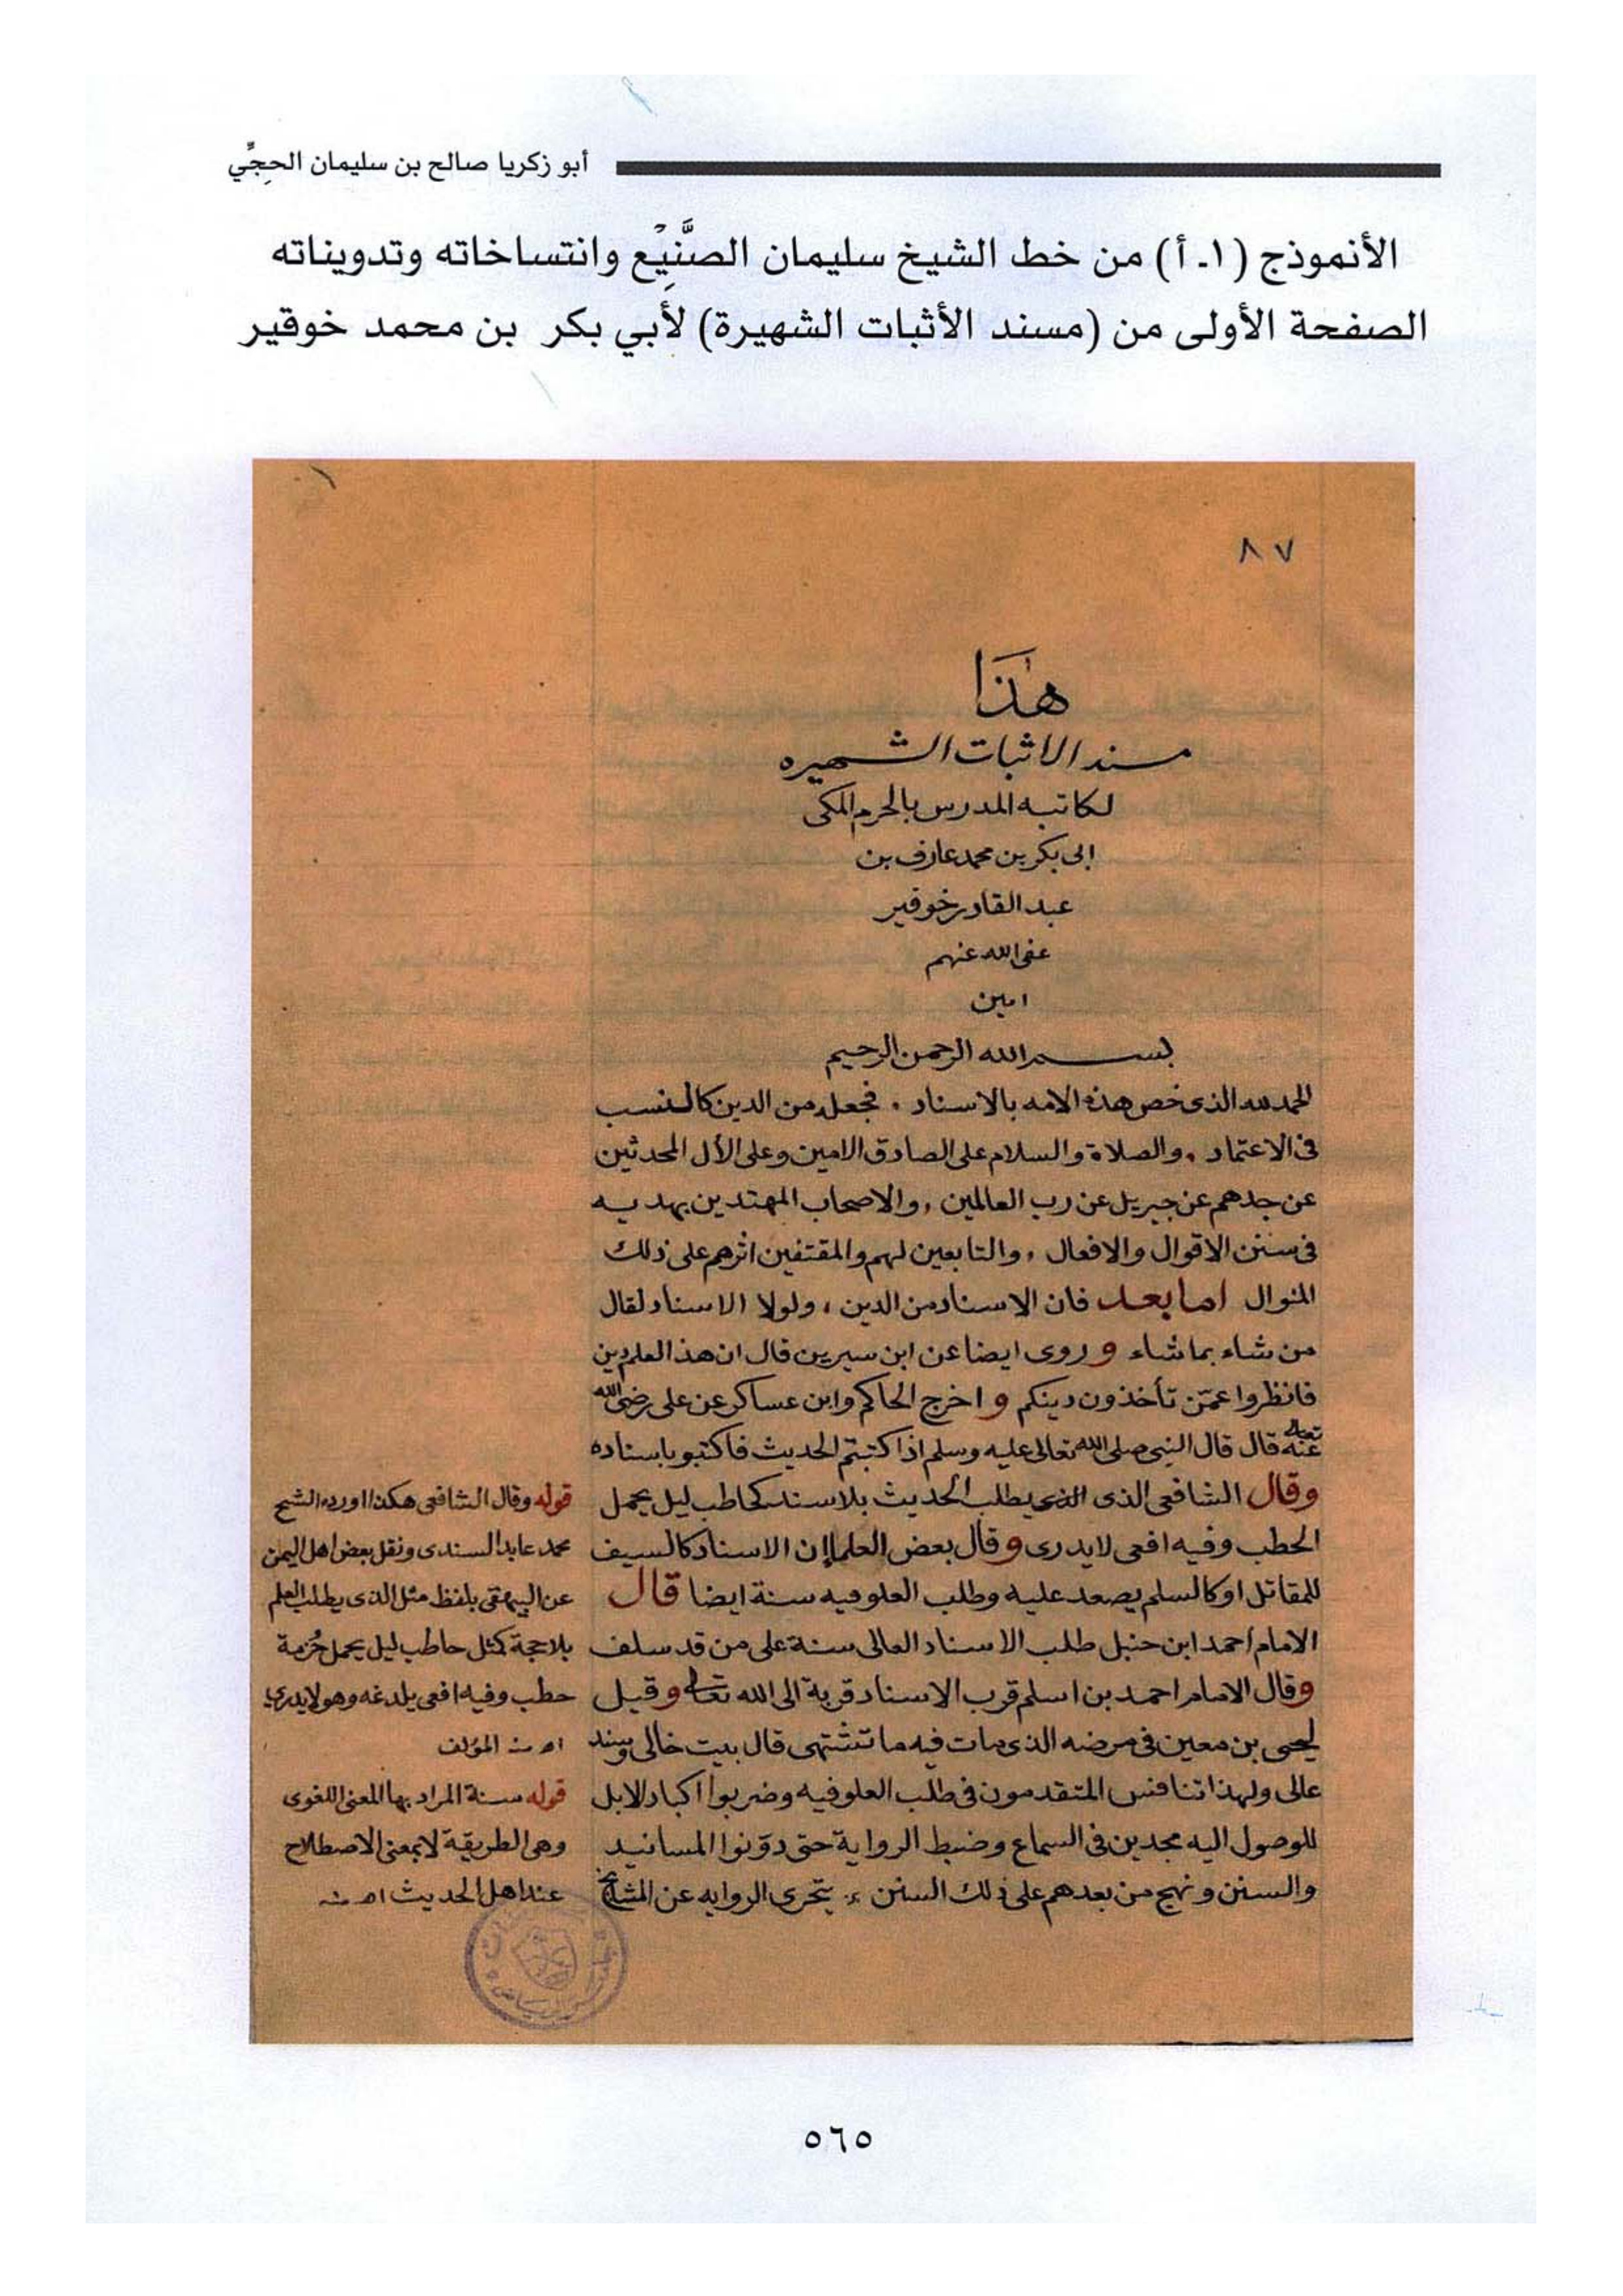 أبو زكريا صالح بن سليمان الحجِّي
الأنموذج (١ـ أ) من خط الشيخ سليمان الصَّنِيْع وانتساخاته وتدويناته
الصفحة الأولى من (مسند الأثبات الشهيرة) لأبي بكر بن محمد خوقير
١
٨٧
هٰذَا
مسند الاثبات الشهيره
لكاتبه المدرس بالحرم المكى
ابى بكر بن محمد عارف بن
عبد القادر خوقير
عفى الله عنهم
امين
بسم الله الرحمن الرحيم
الحمد لله الذى خص هذه الامه بالاسناد . فجعله من الدين كالنسب
فى الاعتماد . والصلاة والسلام على الصادق الامين وعلى الأل المحدثين
عن جدهم عن جبريل عن رب العالمين , والاصحاب المهتدين بهديه
فى سنن الاقوال والافعال , والتابعين لهم والمقتفين اثرهم على ذلك
المنوال اما بعد فان الاسناد من الدين , ولولا الاسناد لقال
من شاء بما شاء وروى ايضا عن ابن سيرين قال ان هذ العلم دين
فانظروا عمّن تأخذون دينكم واخرج الحاكم وابن عساكر عن على رضى الله
تعالى عنه قال قال النبى صلى الله تعالى عليه وسلم اذا كتبتم الحديث فاكتبو باسناده
وقال الشافعى الذى يطلب الحديث بلا سند كحاطب ليل يحمل
الحطب وفيه افعى لا يدرى وقال بعض العلما إن الاسناد كالسيف
للمقاتل او كالسلم يصعد عليه وطلب العلو فيه سنة ايضا قال
الامام احمد ابن حنبل طلب الاسناد العالى سنة على من قد سلف
وقال الامام احمد بن اسلم قرب الاسناد قربة الى الله تعالى وقيل
ليحيى بن معين فى مرضه الذى مات فيه ما تشتهى قال بيت خالى وسند
عالى ولهذا تنافس المتقدمون فى طلب العلو فيه وضربوا اكباد الابل
للوصول اليه مجدين فى السماع وضبط الرواية حتى دوّنوا المسانيد
والسنن ونهج من بعدهم على ذلك السنن , يتحرى الروايه عن المشايخ
قوله وقال الشافعى هكذا اورده الشيخ
محمد عابد السندى ونقل بعض اهل اليمن
عن البيهقى بلفظ مثل الذى يطلب العلم
بلا حجة كمثل حاطب ليل يحمل حُزمة
حطب وفيه افعى يلدغه وهو لا يدرى
اه منه المؤلف
قوله سنة المراد بها المعنى اللغوى
وهى الطريقة لا بمعنى الاصطلاح
عند اهل الحديث اه منه
٥٦٥